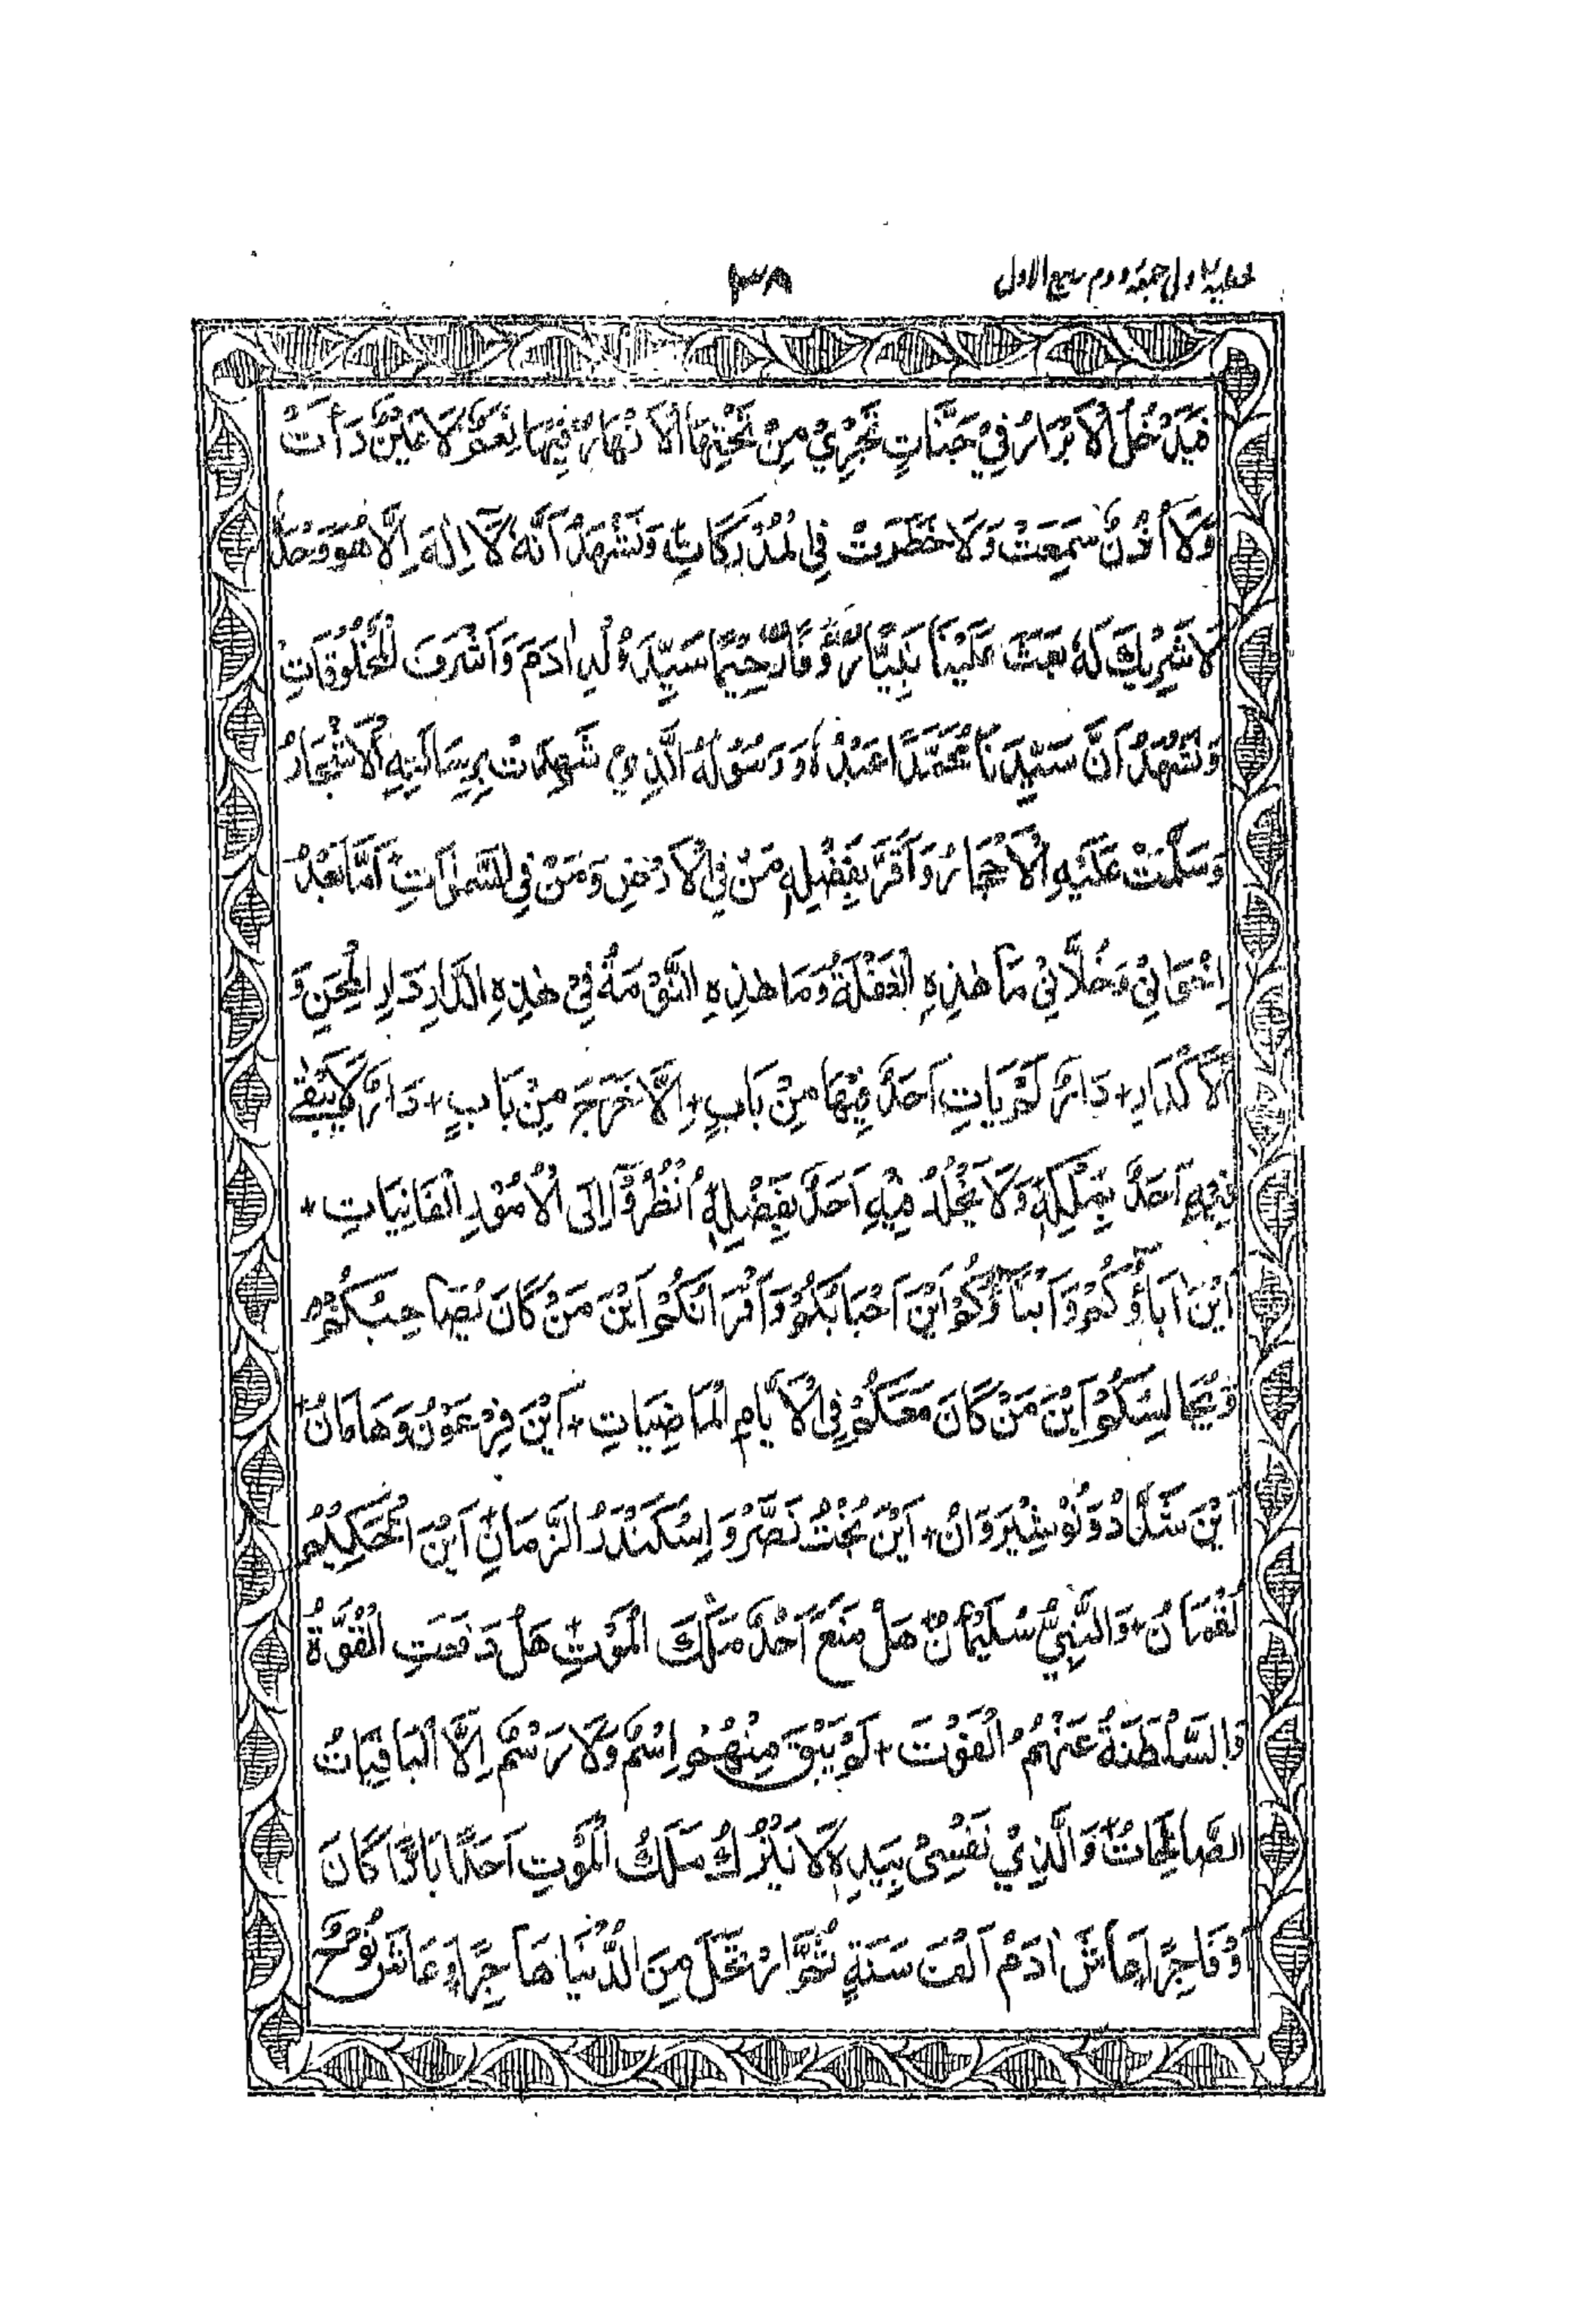 خطبۂ اول جمعۂ دوم ربیع الاول
۳۸
فَیَدْخُلُ الْاَبْرَارُ فِيْ جَنَّاتٍ تَجْرِيْ مِنْ تَحْتِهَا الْاَنْهَارُ فِيْهَا نِعَمٌ لَا عَيْنٌ رَأَتْ
وَلَا اُذُنٌ سَمِعَتْ وَلَا خَطَرَتْ فِي الْمُدْرَكَاتِ وَنَشْهَدُ اَنَّهٗ لَآ اِلٰهَ اِلَّا هُوَ وَحْدَهٗ
لَا شَرِيْكَ لَهٗ بَعَثَ عَلَيْنَا نَبِيًّا رَّءُوْفًا رَّحِيْمًا سَيِّدَ وُلْدِ اٰدَمَ وَاَشْرَفَ الْمَخْلُوْقَاتِ
وَنَشْهَدُ اَنَّ سَيِّدَنَا مُحَمَّدًا عَبْدُهٗ وَرَسُوْلُهُ الَّذِيْ شَهِدَتْ بِرِسَالَتِهِ الْاَشْجَارُ
وَسَلَّمَتْ عَلَيْهِ الْاَحْجَارُ وَاَقَرَّ بِفَضْلِهٖ مَنْ فِي الْاَرْضِ وَمَنْ فِي السَّمٰوَاتِ اَمَّا بَعْدُ
اِخْوَانِيْ وَخُلَّانِيْ مَا هٰذِهِ الْغَفْلَةُ وَمَا هٰذِهِ النَّوْمَةُ فِيْ هٰذِهِ الدَّارِ دَارِ الْمِحَنِ وَ
الْاَكْدَارِ + دَارٌ لَمْ يَاتِ اَحَدٌ فِيْهَا مِنْ بَابٍ + اِلَّا خَرَجَ مِنْ بَابٍ + دَارٌ لَا يَبْقٰى
فِيْهِ اَحَدٌ بِمُلْكِهٖ وَلَا يَخْلُدُ فِيْهِ اَحَدٌ بِفَضْلِهٖ اُنْظُرُوْٓا اِلَى الْاُمُوْرِ الْفَانِيَاتِ +
اَيْنَ اٰبَاؤُكُمْ وَاَبْنَاؤُكُمْ اَيْنَ اَحْبَابُكُمْ وَاَقْرَانُكُمْ اَيْنَ مَنْ كَانَ يُصَاحِبُكُمْ
وَيُجَالِسُكُمْ اَيْنَ مَنْ كَانَ مَعَكُمْ فِي الْاَيَّامِ الْمَاضِيَاتِ + اَيْنَ فِرْعَوْنُ وَهَامَانُ +
اَيْنَ شَدَّادُ وَنُوْشِيْرَوَانُ + اَيْنَ بُخْتُ نَصَّرُ وَاِسْكَنْدَرُ الزَّمَانِ اَيْنَ الْحَكِيْمُ
لُقْمَانُ + وَالنَّبِيُّ سُلَيْمَانُ + هَلْ مَنَعَ اَحَدٌ مَلَكَ الْمَوْتِ + هَلْ دَفَعَتِ الْقُوَّةُ
وَالسَّلْطَنَةُ عَنْهُمُ الْفَوْتَ + لَمْ يَبْقَ مِنْهُمْ اِسْمٌ وَّلَا رَسْمٌ اِلَّا الْبَاقِيَاتُ
الصَّالِحَاتُ وَالَّذِيْ نَفْسِيْ بِيَدِهٖ لَا يَتْرُكُ مَلَكُ الْمَوْتِ اَحَدًا بَارًّا كَانَ
اَوْ فَاجِرًا عَاشَ اٰدَمُ اَلْفَ سَنَةٍ ثُمَّ ارْتَحَلَ مِنَ الدُّنْيَا هَاجِرًا وَعَاشَ نُوْحٌ